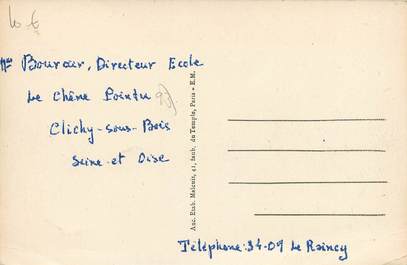 10 €
Mr Bourour, Directeur Ecole
Le Chêne Pointu
Clichy-sous-Bois
Seine-et Oise
Anc. Etab. Malcuit, 41, faub. du Temple, Paris - E.M.
Téléphone: 34-09 Le Raincy